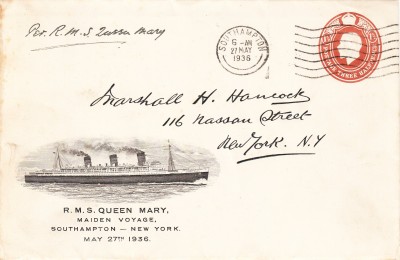 Per R.M.S Queen Mary
SOUTHAMPTON
6 - AM
27 MAY
1936
THREE HALF
Marshall H. Hancock
116 Nassau Street
New York. N.Y
R.M.S. QUEEN MARY,
MAIDEN VOYAGE,
SOUTHAMPTON — NEW YORK.
MAY 27TH 1936.